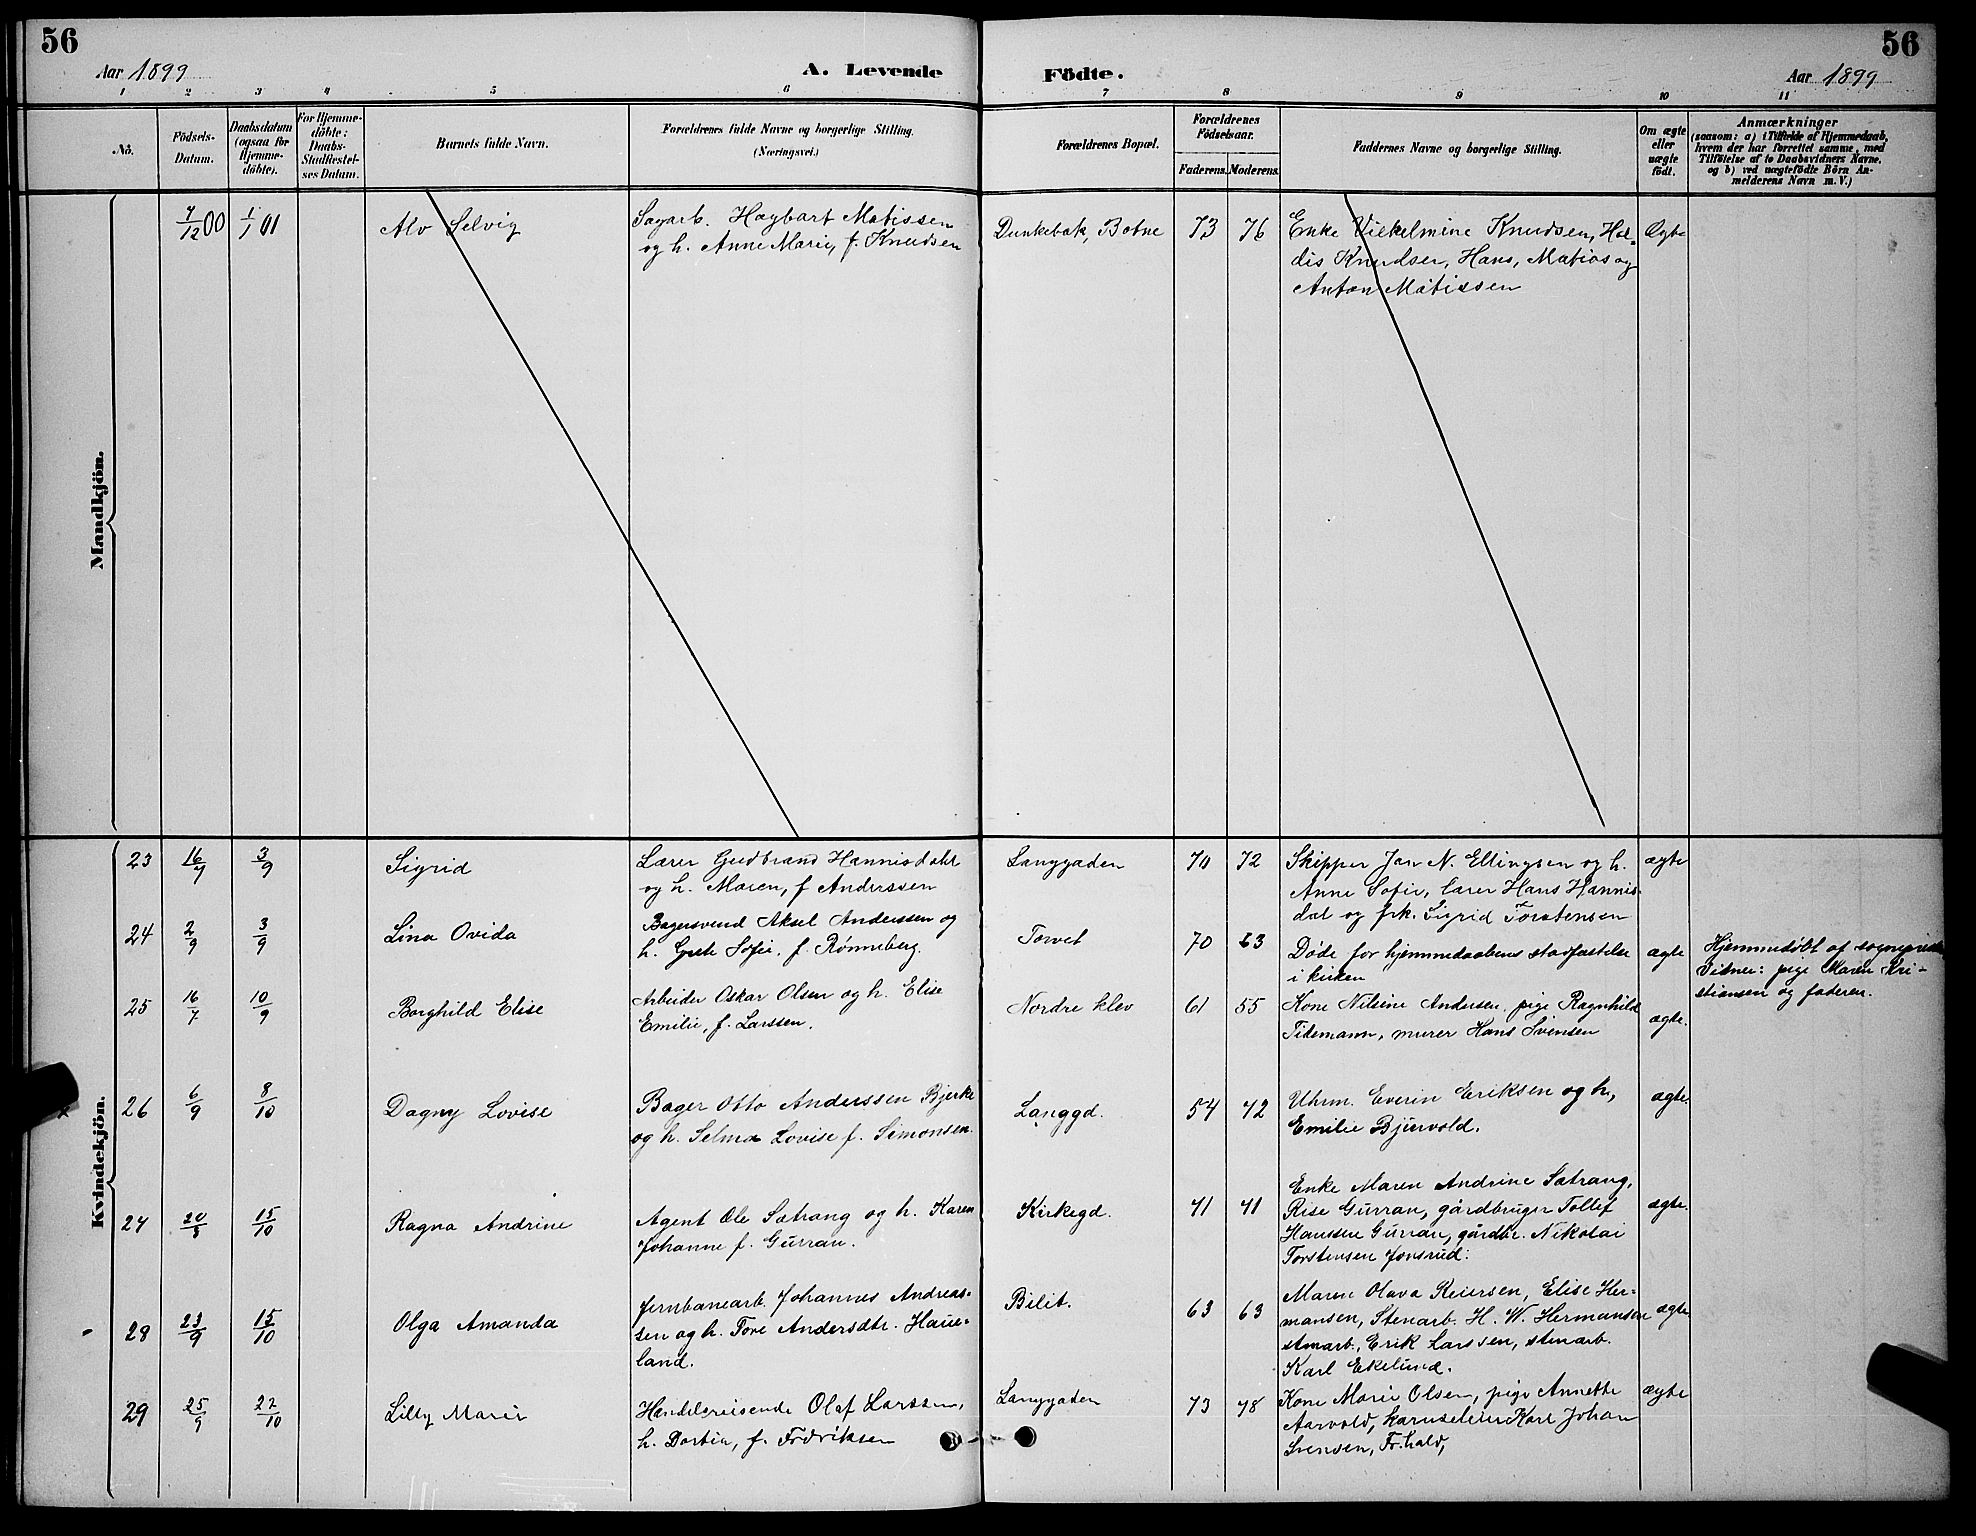 56
Aar 1899
A. Levende Födte.
56
Aar 1899
1 2 3 4 5 6 7 8 9 10 11
No.
Födsels-
Datum.
Daabsdatum
(ogsaa for
Hjemme-
döbte).
For Hjemme-
döbte:
Daabs-
Stadfæstel-
ses Datum.
Barnets fulde Navn.
Forældrenes fulde Navne og borgerlige Stilling.
(Næringsvei.)
Forældrenes Bopæl.
Forældrenes
Födselsaar.
Faderens. Moderens.
Faddernes Navne og borgerlige Stilling.
Om ægte
eller
uægte
født.
Anmærkninger
(saasom: a) i Tilfælde af Hjemmedaab,
hvem der har forrettet samme, med
Tilföielse af to Daabsvidners Navne,
og b) ved uægtefödte Börn An-
melderens Navn m. V.)
Mandkjön.
7/12 00 1/1 01 Alv Selvig
Sagarb. Hagbart Matissen
og h. Anne Marie, f. Knudsen
Dunkebæk, Botne 73 76
Enke Vilhelmine Knudsen, Hal-
dis Knudsen, Hans, Matias og
Anton Matissen
Ægte
Kvindekjön.
23 16/7 3/9 Sigrid
Lærer Gudbrand Hannisdahl
og h. Maren, f. Anderssen
Langgaden 70 72
Skipper Jan N. Ellingsen og h.
Anne Sofie, lærer Hans Hannis-
dal og frk. Sigrid Torstensen
ægte
24 2/9 3/9 Lina Ovida
Bagersvend Aksel Anderssen og
h. Grete Sofie, f. Rønneberg.
Torvet 70 63
Døde før hjemmedaabens stadfæstelse
i kirken
ægte
Hjemmedøbt af sognepræst
Vidner: pige Maren Kri-
stiansen og faderen.
25 16/7 10/9 Borghild Elise
Arbeider Oskar Olsen og h. Elise
Emilie, f. Larssen.
Nordre klev 61 55
Kone Nilsine Andersen, pige Ragnhild
Tidemann, murer Hans Svensen
ægte.
x 26 6/9 8/10 Dagny Lovise
Bager Otto Anderssen Bjerke
og h. Selma Lovise f. Simonsen.
Langgd. 54 72
Uhrm. Everin Eriksen og h,
Emilie Bjervold.
ægte.
27 20/8 15/10 Ragna Andrine
Agent Ole Sætrang og h. Karen
Johanne f. Gurran.
Kirkegd. 71 71
Enke Maren Andrine Sætrang,
Rise Gurran, gårdbruger Tollef
Hanssen Gurran, gårdbr. Nikolai
Torstensen Jonsrud.
ægte.
28 23/9 15/10 Olga Amanda
Jernbanearb. Johannes Andreas-
sen og h. Tore Andersdtr. Haue-
land.
Bilit. 63 63
Maren Olava Reiersen, Elise Her-
mansen, Stenarb. H. W. Hermansen
stenarb., Erik Larssen, stenarb.
Karl Ekelund.
ægte
29 25/9 22/10 Lilly Marie
Handelsreisende Olaf Larssen,
h. Dortea, f. Fredriksen
Langgaden 73 78
Kone Marie Olsen, pige Annette
Aarvold, karuseleier Karl Johan
Svensen, Fr.hald,
ægte